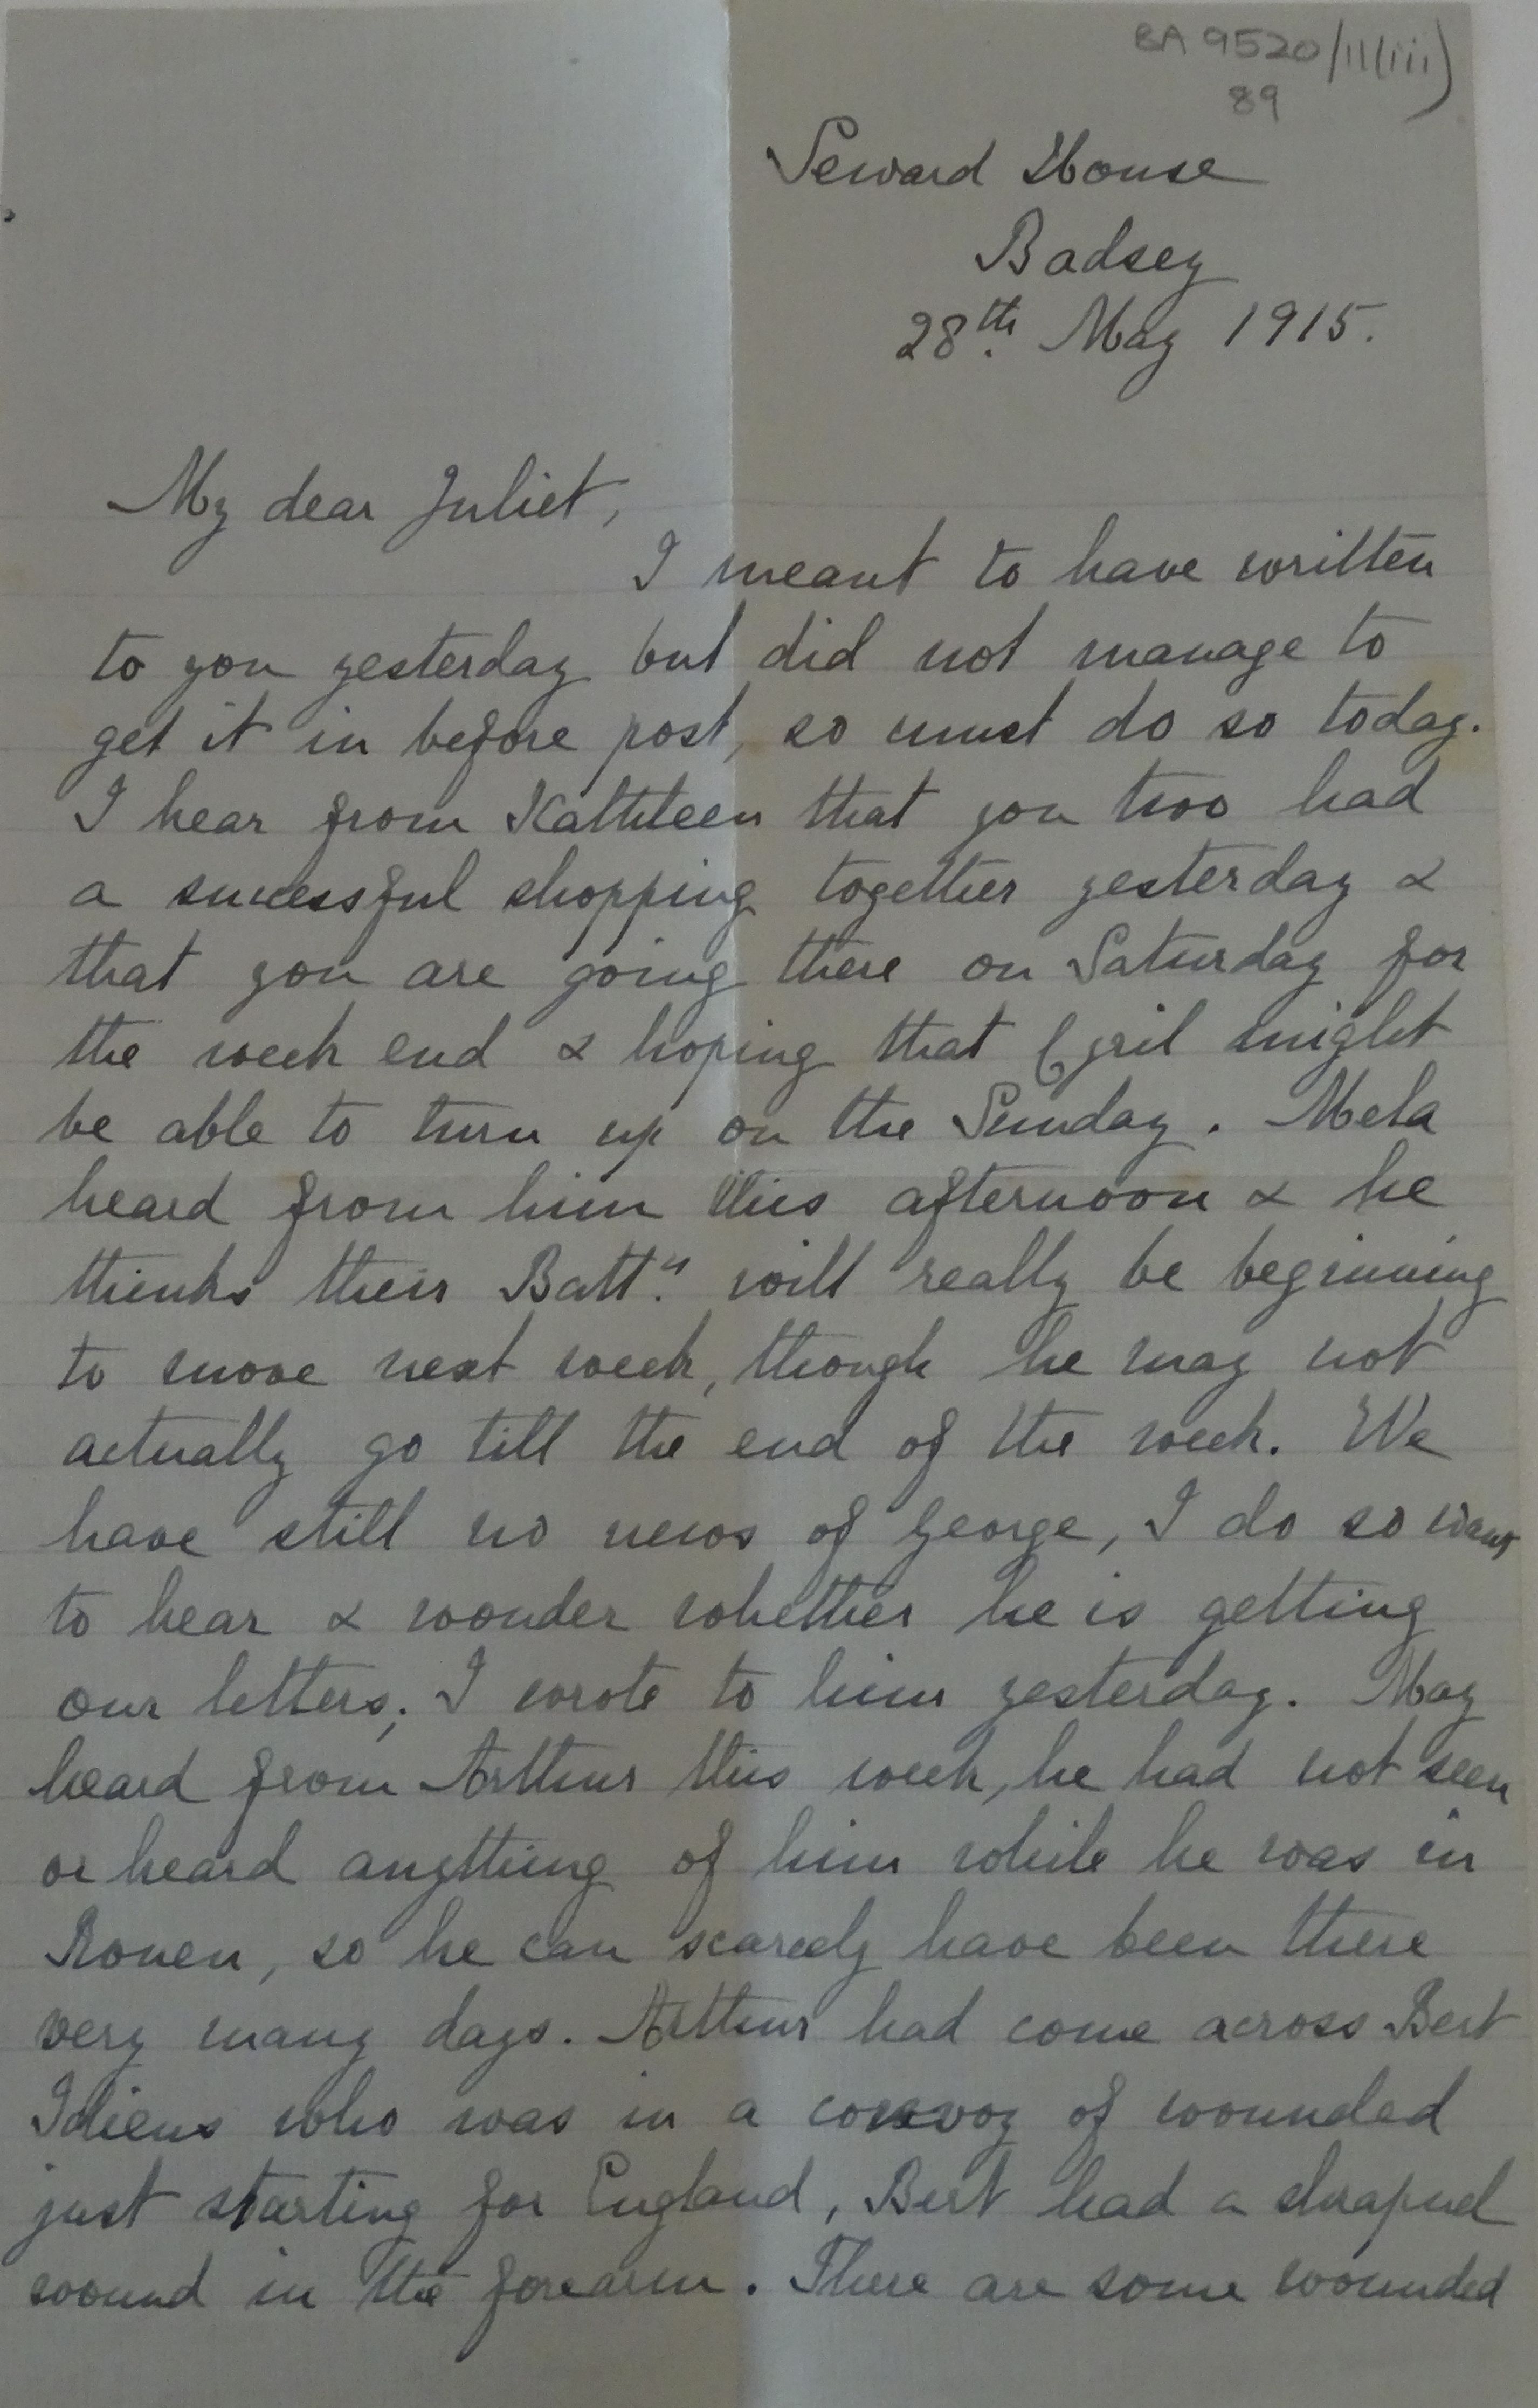 BA 9520/11(iii)
89
Seward House
Badsey
28th. May 1915.
My dear Juliet,
I meant to have written
to you yesterday but did not manage to
get it in before post, so must do so today.
I hear from Kathleen that you two had
a successful shopping together yesterday &
that you are going there on Saturday for
the week end & hoping that Cyril might
be able to turn up on the Sunday. Mela
heard from him this afternoon & he
thinks their Battn. will really be beginning
to move next week, though he may not
actually go till the end of the week. We
have still no news of George, I do so want
to hear & wonder whether he is getting
our letters; I wrote to him yesterday. May
heard from Arthur this week, he had not seen
or heard anything of him while he was in
Rouen, so he can scarcely have been there
very many days. Arthur had come across Bert
Idiens who was in a convoy of wounded
just starting for England, Bert had a shrapnel
wound in the forearm. There are some wounded